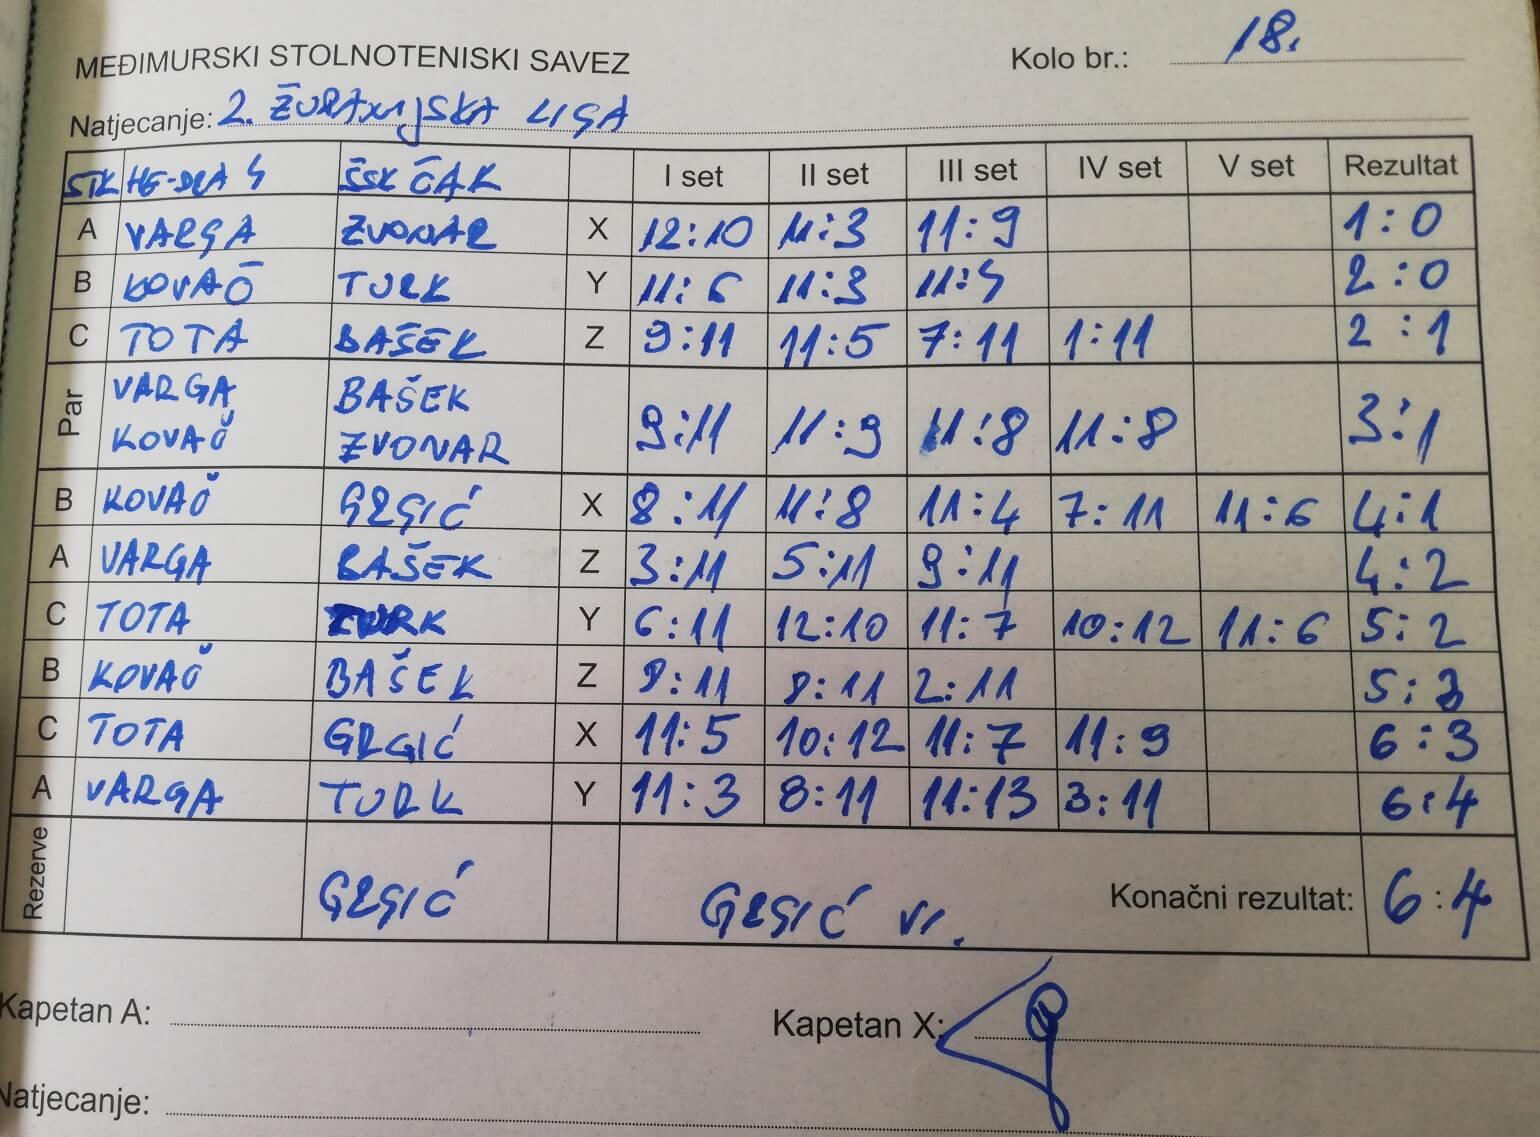 MEĐIMURSKI STOLNOTENISKI SAVEZ Kolo br.: 18.
Natjecanje: 2. ŽUPANIJSKA LIGA
STK HG-DRA 4 ŠSK ČAK I set II set III set IV set V set Rezultat
A VARGA ZVONAR X 12:10 11:3 11:9 1:0
B KOVAČ TURK Y 11:6 11:3 11:5 2:0
C TOTA BAŠEK Z 9:11 11:5 7:11 1:11 2:1
Par VARGA BAŠEK
KOVAČ ZVONAR 9:11 11:9 11:8 11:8 3:1
B KOVAČ GRGIĆ X 8:11 11:8 11:4 7:11 11:6 4:1
A VARGA BAŠEK Z 3:11 5:11 9:11 4:2
C TOTA TURK Y 6:11 12:10 11:7 10:12 11:6 5:2
B KOVAČ BAŠEK Z 9:11 9:11 2:11 5:3
C TOTA GRGIĆ X 11:5 10:12 11:7 11:9 6:3
A VARGA TURK Y 11:3 8:11 11:13 3:11 6:4
Rezerve GRGIĆ GRGIĆ VI. Konačni rezultat: 6:4
Kapetan A: Kapetan X:
Natjecanje: